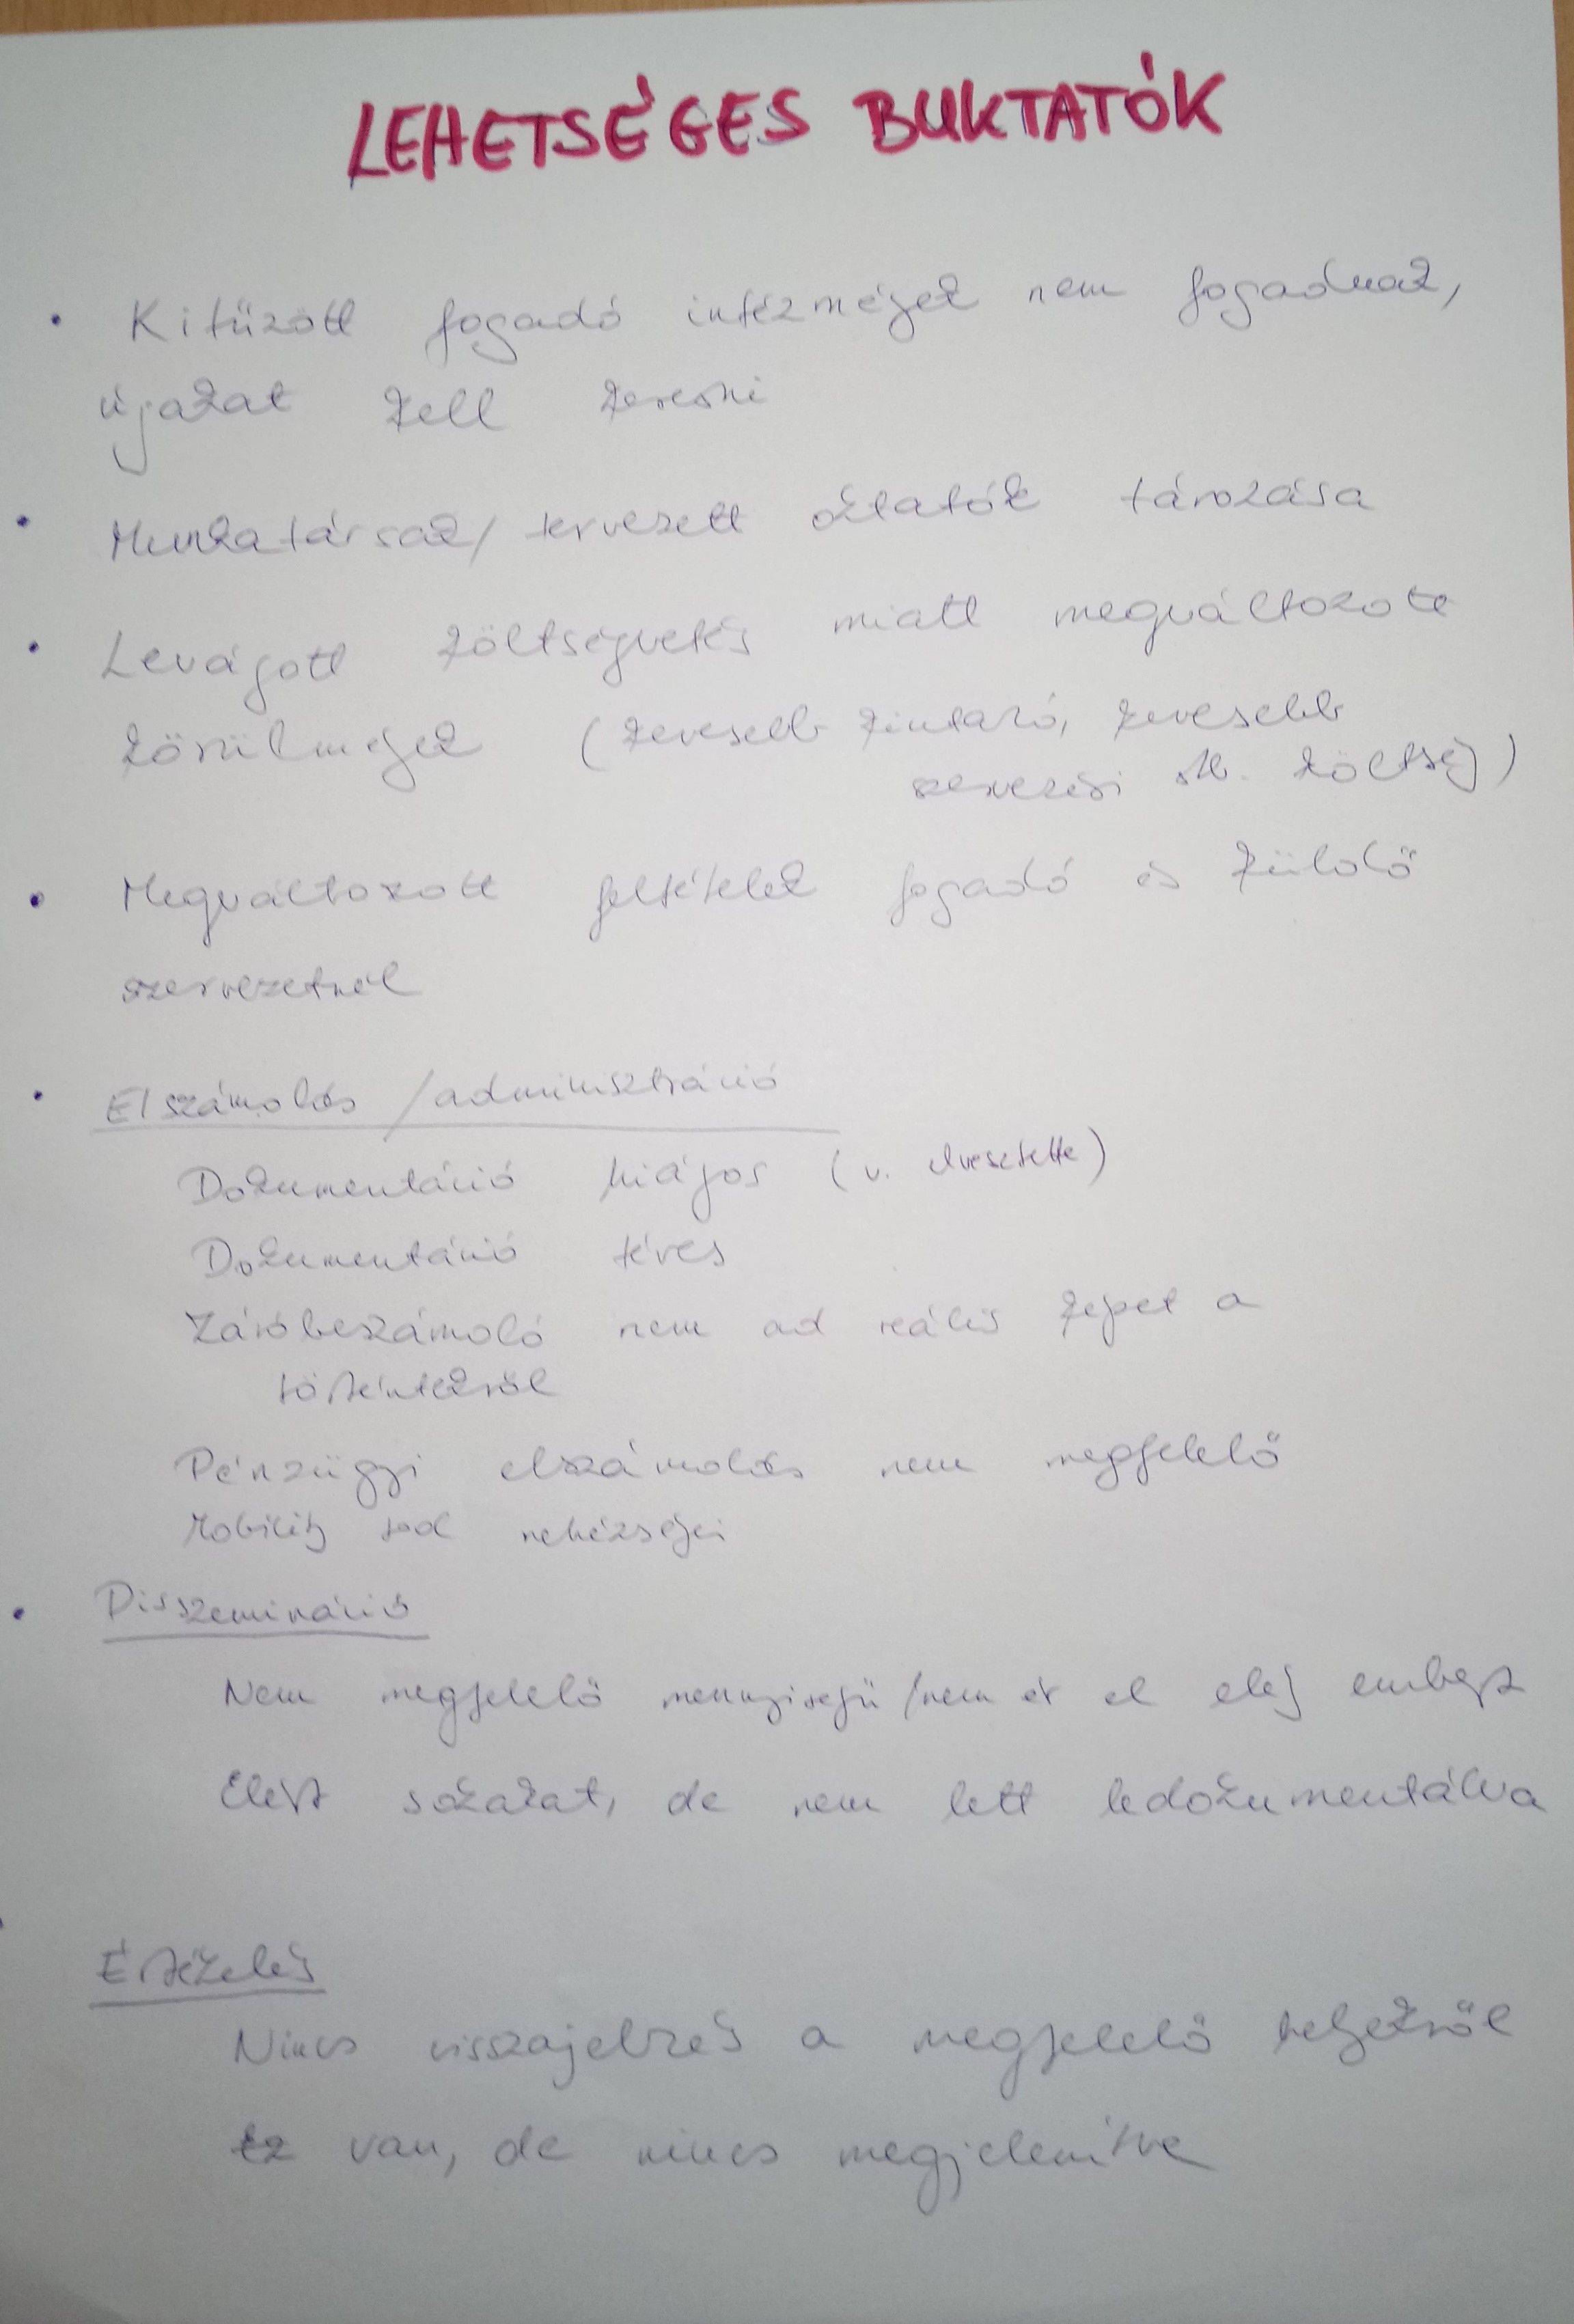 LEHETSÉGES BUKTATÓK
• Kitűzött fogadó intézmények nem fogadnak,
újakat kell keresni
• Munkatársak/ tervezett oktatók távozása
• Levágott költségvetés miatt megváltozott
körülmények (kevesebb kiutazó, kevesebb
szervezési stb. költség)
• Megváltozott feltételek fogadó és küldő
szervezetnél
• Elszámolás /adminisztráció
Dokumentáció hiányos (v. elvesztette)
Dokumentáció téves
Záróbeszámoló nem ad reális képet a
történtekről
Pénzügyi elszámolás nem megfelelő
Mobility tool nehézségei
• Disszemináció
Nem megfelelő mennyiségű /nem ér el elég embert
Elért sokakat, de nem lett ledokumentálva
Értékelés
Nincs visszajelzés a megfelelő helyekről
Ez van, de nincs megjelenítve